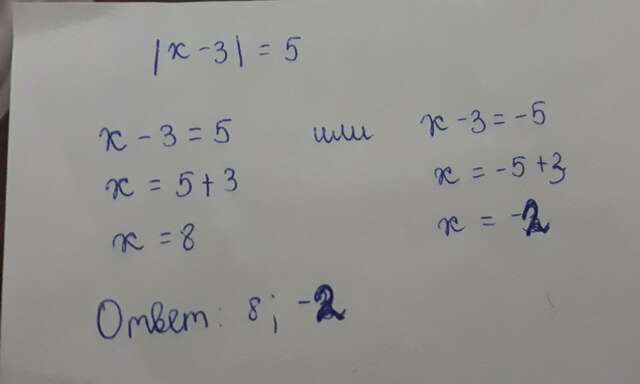 |x - 3| = 5
x - 3 = 5 или x - 3 = -5
x = 5 + 3 x = -5 + 3
x = 8 x = -2
Ответ: 8; -2